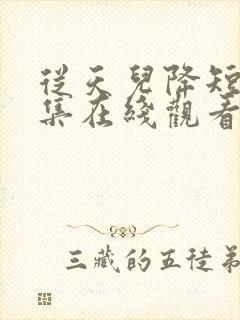 從天兒降短
集在綫觀看
三藏的五徒弟